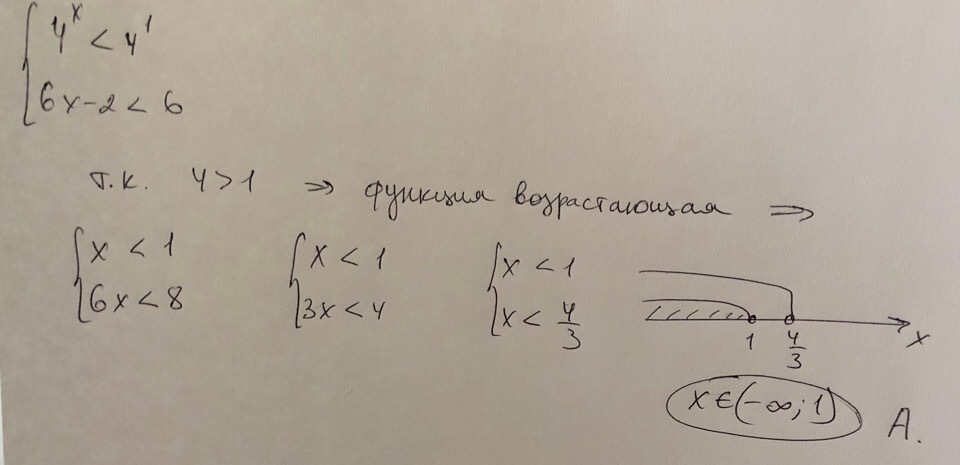 { 4^x < 4^1
{ 6x-2 < 6
т.к. 4>1 ⇒ функция возрастающая ⇒
{ x < 1 { x < 1 { x < 1
{ 6x < 8 { 3x < 4 { x < 4/3
1 4/3 x
x∈(-∞;1) А.